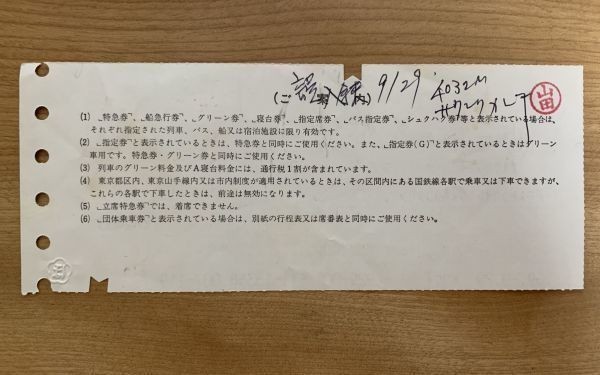 (ご案内) 9/29 4032M
山田
(1) 「特急券」、「船急行券」、「グリーン券」、「寝台券」、「指定席券」、「バス指定券」、「シュクハク券」等と表示されている場合は、
それぞれ指定された列車、バス、船又は宿泊施設に限り有効です。
(2) 「指定券」と表示されているときは、特急券と同時にご使用ください。また、「指定券(G)」と表示されているときはグリーン
車用です。特急券・グリーン券と同時にご使用ください。
(3) 列車のグリーン料金及びA寝台料金には、通行税1割が含まれています。
(4) 東京都区内、東京山手線内又は市内制度が適用されているときは、その区間内にある国鉄線各駅で乗車又は下車できますが、
これらの各駅で下車したときは、前途は無効になります。
(5) 「立席特急券」では、着席できません。
(6) 「団体乗車券」と表示されている場合は、別紙の行程表又は席番表と同時にご使用ください。